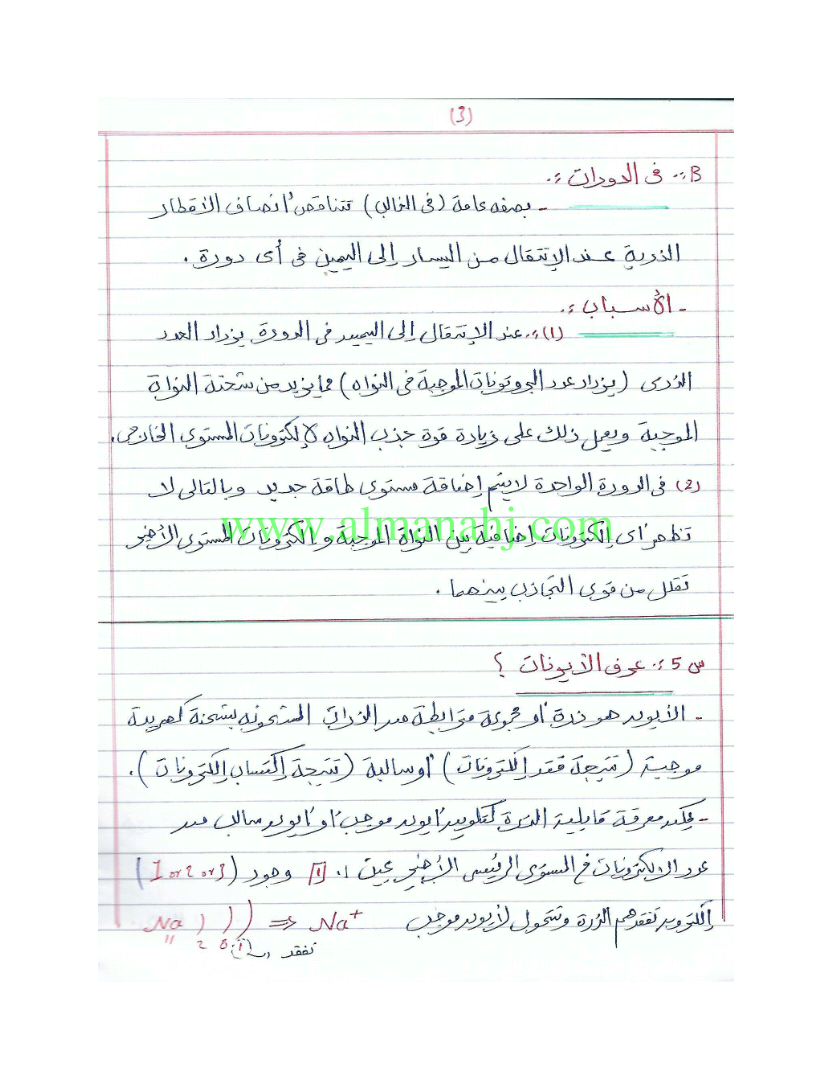 (3)
B:- فى الدورات :-
- بصفه عامة (فى الغالب) تتناقص أنصاف الأقطار
الذرية عند الإنتقال من اليسار إلى اليمين فى أى دورة .
- الأسباب :-
(1):- عند الإنتقال إلى اليمين فى الدورة يزداد العدد
الذرى (يزداد عدد البروتونات الموجبة فى النواه) مما يزيد من شحنة النواة
الموجبة ويعمل ذلك على زيادة قوة جذب النواه لإلكترونات المستوى الخارجى.
(2) فى الدورة الواحدة لايتم إضافة مستوى طاقة جديد وبالتالى لا
تظهر أى إلكترونات إضافية بين النواة الموجبة و إلكترونات المستوى الأخير
www.almanahj.com
تقلل من قوى التجاذب بينهما .
س5:- عرف الأيونات ؟
- الأيون هو ذرة أو مجموعة مترابطة من الذرات المشحونه بشحنة كهربية
موجبة (نتيجة فقد إلكترونات) أو سالبة (نتيجة إكتساب إلكترونات).
- يمكن معرفة قابلية الذرة لتكوين أيون موجب أو أيون سالب من
عدد الإلكترونات فى المستوى الرئيسى الأخير بحيث :- [1] وجود (1 or 2 or 3)
إلكترون تفقدهم الذرة وتتحول لأيون موجب Na ) ) ) ⇒ Na+
11 2 8 1 تفقد